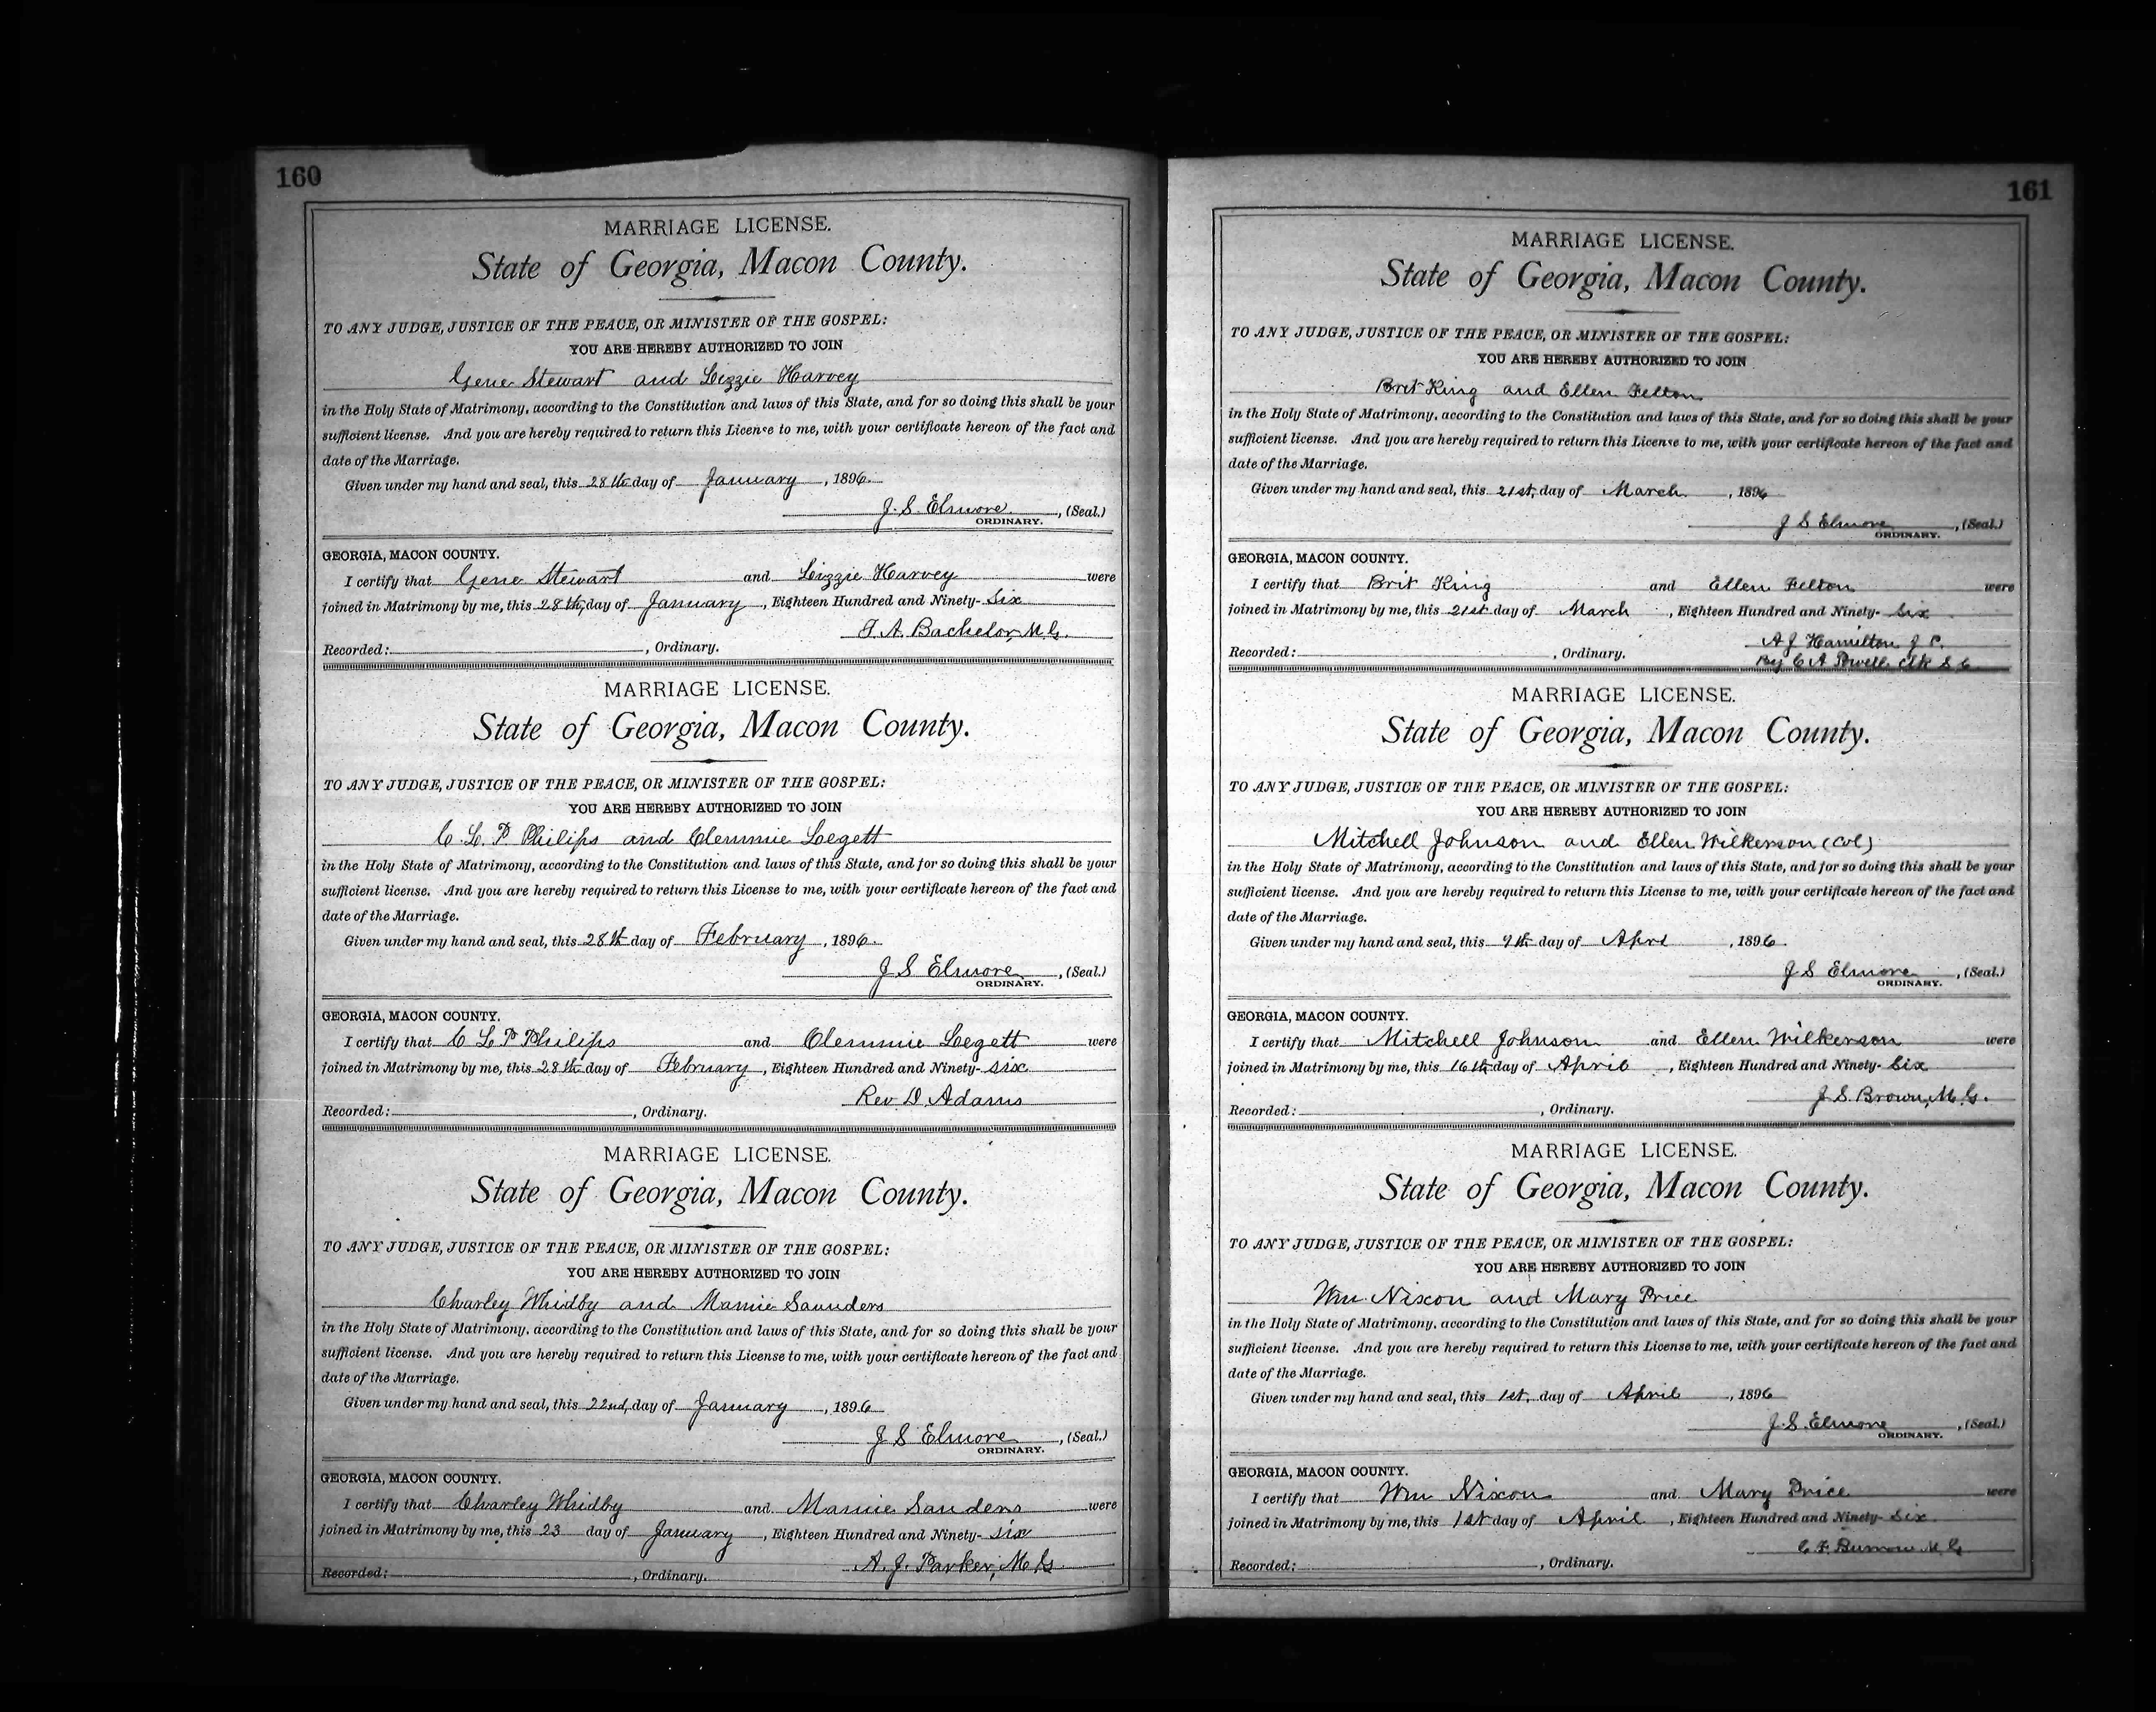 160
MARRIAGE LICENSE.
State of Georgia, Macon County.
TO ANY JUDGE, JUSTICE OF THE PEACE, OR MINISTER OF THE GOSPEL:
YOU ARE HEREBY AUTHORIZED TO JOIN
Gene Stewart and Lizzie Harvey
in the Holy State of Matrimony, according to the Constitution and laws of this State, and for so doing this shall be your
sufficient license. And you are hereby required to return this License to me, with your certificate hereon of the fact and
date of the Marriage.
Given under my hand and seal, this 28th day of January, 1896.
J. S. Elmore, (Seal.)
ORDINARY.
GEORGIA, MACON COUNTY.
I certify that Gene Stewart and Lizzie Harvey were
joined in Matrimony by me, this 28th, day of January, Eighteen Hundred and Ninety-Six
A. Bachelor, M.G.
Recorded: , Ordinary.
MARRIAGE LICENSE.
State of Georgia, Macon County.
TO ANY JUDGE, JUSTICE OF THE PEACE, OR MINISTER OF THE GOSPEL:
YOU ARE HEREBY AUTHORIZED TO JOIN
C. L. P Philips and Clemmie Legett
in the Holy State of Matrimony, according to the Constitution and laws of this State, and for so doing this shall be your
sufficient license. And you are hereby required to return this License to me, with your certificate hereon of the fact and
date of the Marriage.
Given under my hand and seal, this 28th day of February, 1896.
J S Elmore, (Seal.)
ORDINARY.
GEORGIA, MACON COUNTY.
I certify that C L P Philips and Clemmie Legett were
joined in Matrimony by me, this 28th day of February, Eighteen Hundred and Ninety-six
Rev. D. Adams
Recorded: , Ordinary.
MARRIAGE LICENSE.
State of Georgia, Macon County.
TO ANY JUDGE, JUSTICE OF THE PEACE, OR MINISTER OF THE GOSPEL:
YOU ARE HEREBY AUTHORIZED TO JOIN
Charley Whidby and Mamie Saunders
in the Holy State of Matrimony, according to the Constitution and laws of this State, and for so doing this shall be your
sufficient license. And you are hereby required to return this License to me, with your certificate hereon of the fact and
date of the Marriage.
Given under my hand and seal, this 22nd, day of January, 1896
J S Elmore, (Seal.)
ORDINARY.
GEORGIA, MACON COUNTY.
I certify that Charley Whidby and Mamie Sanders were
joined in Matrimony by me, this 23 day of January, Eighteen Hundred and Ninety-six
A. J. Parker, M G
Recorded: , Ordinary.
161
MARRIAGE LICENSE.
State of Georgia, Macon County.
TO ANY JUDGE, JUSTICE OF THE PEACE, OR MINISTER OF THE GOSPEL:
YOU ARE HEREBY AUTHORIZED TO JOIN
Brit King and Ellen Felton
in the Holy State of Matrimony, according to the Constitution and laws of this State, and for so doing this shall be your
sufficient license. And you are hereby required to return this License to me, with your certificate hereon of the fact and
date of the Marriage.
Given under my hand and seal, this 21st, day of March, 1896
J S Elmore, (Seal.)
ORDINARY.
GEORGIA, MACON COUNTY.
I certify that Brit King and Ellen Felton were
joined in Matrimony by me, this 21st day of March, Eighteen Hundred and Ninety-Six
A J Hamilton J P.
By C A Powell Clk S C
Recorded: , Ordinary.
MARRIAGE LICENSE.
State of Georgia, Macon County.
TO ANY JUDGE, JUSTICE OF THE PEACE, OR MINISTER OF THE GOSPEL:
YOU ARE HEREBY AUTHORIZED TO JOIN
Mitchell Johnson and Ellen Wilkerson (col)
in the Holy State of Matrimony, according to the Constitution and laws of this State, and for so doing this shall be your
sufficient license. And you are hereby required to return this License to me, with your certificate hereon of the fact and
date of the Marriage.
Given under my hand and seal, this 9th day of Aprl, 1896.
J S Elmore, (Seal.)
ORDINARY.
GEORGIA, MACON COUNTY.
I certify that Mitchell Johnson and Ellen Wilkerson were
joined in Matrimony by me, this 16th day of April, Eighteen Hundred and Ninety-Six
J. S. Brown, M. G.
Recorded: , Ordinary.
MARRIAGE LICENSE.
State of Georgia, Macon County.
TO ANY JUDGE, JUSTICE OF THE PEACE, OR MINISTER OF THE GOSPEL:
YOU ARE HEREBY AUTHORIZED TO JOIN
Wm. Nixon and Mary Price
in the Holy State of Matrimony, according to the Constitution and laws of this State, and for so doing this shall be your
sufficient license. And you are hereby required to return this License to me, with your certificate hereon of the fact and
date of the Marriage.
Given under my hand and seal, this 1st, day of April, 1896
J. S. Elmore, (Seal.)
ORDINARY.
GEORGIA, MACON COUNTY.
I certify that Wm Nixon and Mary Price were
joined in Matrimony by me, this 1st day of April, Eighteen Hundred and Ninety-Six
C. F. M. G
Recorded: , Ordinary.